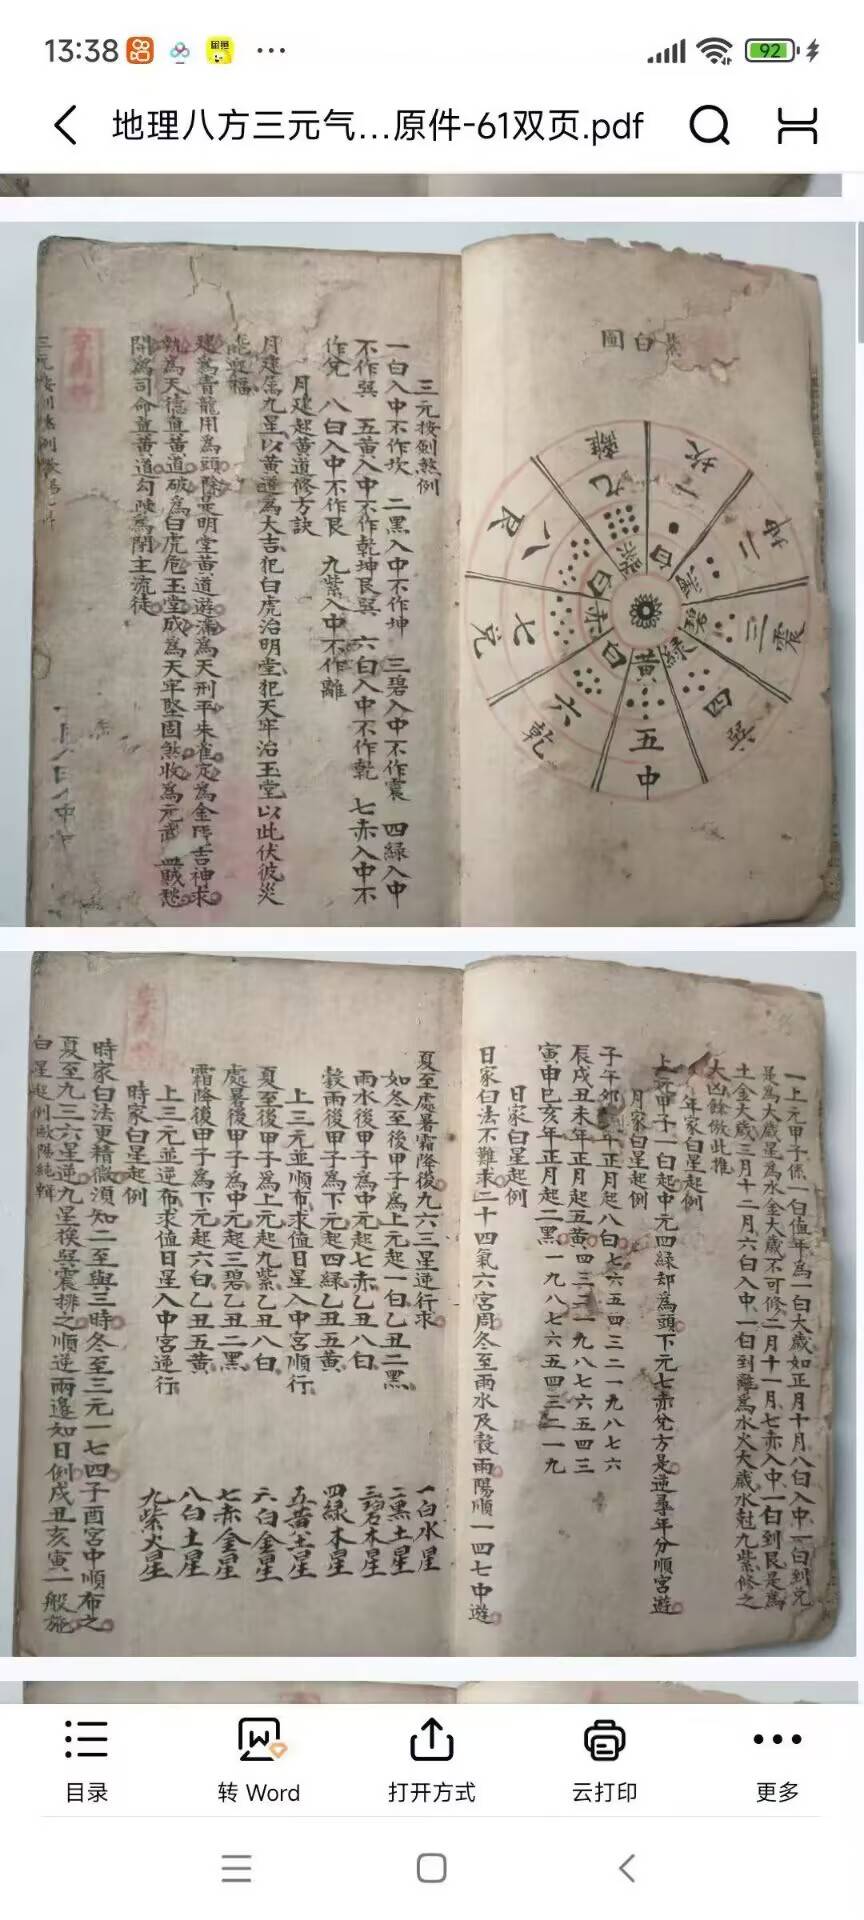 13:38
92
地理八方三元气...原件-61双页.pdf
紫白圖
離 九 紫
坎 一 白
坤 二 黑
震 三 碧
巽 四 綠
中 五 黃
乾 六 白
兌 七 赤
艮 八 白
三元按劍煞例
一白入中不作坎 二黑入中不作坤 三碧入中不作震 四綠入中
不作巽 五黃入中不作乾坤艮巽 六白入中不作乾 七赤入中不
作兌 八白入中不作艮 九紫入中不作離
月建起黃道修方訣
月建屬九星以黃道為大吉犯白虎治明堂犯天牢治玉堂以此伏彼災
能致福
建為青龍用為頭除是明堂黃道遊滿為天刑平朱雀定為金匱吉神求
執為天德直黃道破為白虎危玉堂成為天牢堅固煞收為元武盜賊愁
開為司命益黃道勾陳為閉主流徒
一上元甲子係一白值年為一白大歲如正月十月八白入中一白到兌
是為大歲星為水金大歲不可修二月十一月七赤入中一白到艮是為
土金大歲三月十二月六白入中一白到離為水火大歲水尅九紫修之
大凶餘倣此推
年家白星起例
上元甲子一白起中元四綠却為頭下元七赤兌方是逆尋年分順宮遊
月家白星起例
子午卯 年正月起八白七六五四三二一九八七六
辰戌丑未年正月起五黃四三二一九八七六五四三
寅申巳亥年正月起二黑一九八七六五四三二一九
日家白星起例
日家白法不難求二十四氣六宮周冬至雨水及穀雨陽順一四七中遊
夏至處暑霜降後九六三星逆行求
如冬至後甲子為上元起一白乙丑二黑
雨水後甲子為中元起七赤乙丑八白
穀雨後甲子為下元起四綠乙丑五黃
上三元並順布求值日星入中宮順行
夏至後甲子為上元起九紫乙丑八白
處暑後甲子為中元起三碧乙丑二黑
霜降後甲子為下元起六白乙丑五黃
上三元並逆布求值日星入中宮逆行
時家白星起例
時家白法更精微須知二至與三時冬至三元一七四子酉宮中順布之
夏至九三六星逆九星挨與震排之順逆兩邊如日例戌丑亥寅一般施
白星起例歐陽純輯
一白水星
二黑土星
三碧木星
四綠木星
五黃土星
六白金星
七赤金星
八白土星
九紫火星
目录
转 Word
打开方式
云打印
更多